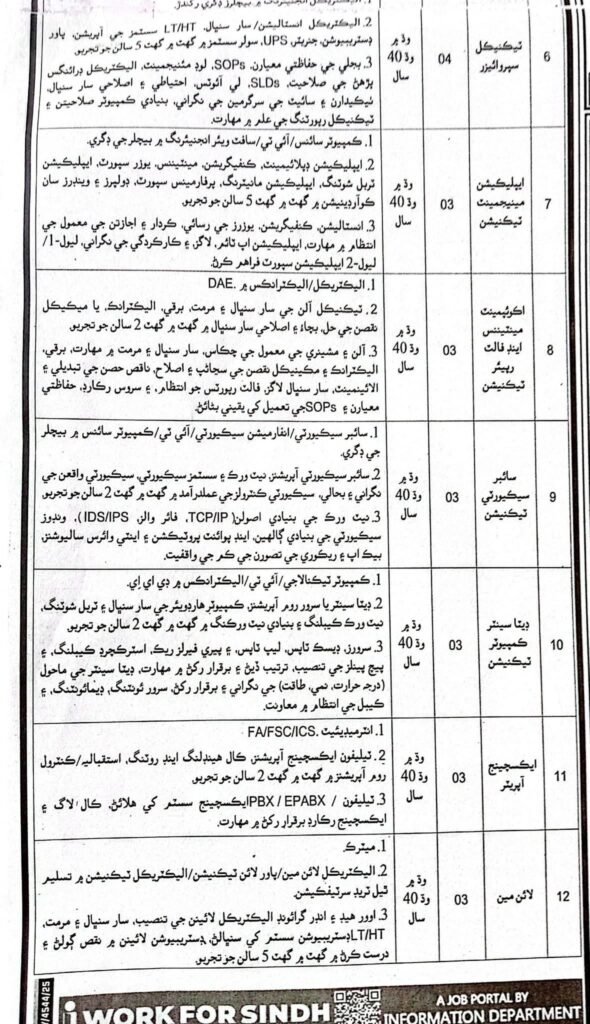 1. اليڪٽريڪل انجنيئرنگ ۾ بيچلرز ڊگري رکندڙ.
6
ٽيڪنيڪل
سپروائيزر
04
وڌ ۾
وڌ 40
سال
2. اليڪٽريڪل انسٽاليشن/ سار سنڀال، LT/HT سسٽمز جي آپريشن، پاور
ڊسٽريبيوشن، جنريٽر، UPS، سولر سسٽمز ۾ گهٽ ۾ گهٽ 5 سالن جو تجربو.
3. بجلي جي حفاظتي معيارن، SOPs، لوڊ مئنيجمينٽ، اليڪٽريڪل ڊرائنگس
پڙهڻ جي صلاحيت، SLDs، لي آئوٽس، احتياطي ۽ اصلاحي سار سنڀال،
ٺيڪيدارن ۽ سائيٽ جي سرگرمين جي نگراني، بنيادي ڪمپيوٽر صلاحيتن ۽
ٽيڪنيڪل رپورٽنگ جي علم ۾ مهارت.
7
ايپليڪيشن
مينيجمينٽ
ٽيڪنيشن
03
وڌ ۾
وڌ 40
سال
1. ڪمپيوٽر سائنس/ آئي ٽي/ سافٽ ويئر انجنيئرنگ ۾ بيچلر جي ڊگري.
2. ايپليڪيشن ڊپلائيمينٽ، ڪنفيگريشن، مينٽيننس، يوزر سپورٽ، ايپليڪيشن
ٽربل شوٽنگ، ايپليڪيشن مانيٽرنگ، پرفارمينس سپورٽ، ڊولپرز ۽ وينڊرز سان
ڪوآرڊينيشن ۾ گهٽ ۾ گهٽ 5 سالن جو تجربو.
3. انسٽاليشن، ڪنفيگريشن، يوزرز جي رسائي، ڪردار ۽ اجازتن جي معمول جي
انتظام ۾ مهارت، ايپليڪيشن اپ ٽائم، لاگز، ۽ ڪارڪردگي جي نگراني، ليول-1/
ليول-2 ايپليڪيشن سپورٽ فراهم ڪرڻ.
8
اڪوئپمينٽ
مينٽيننس
اينڊ فالٽ
رپيئر
ٽيڪنيشن
03
وڌ ۾
وڌ 40
سال
1. اليڪٽريڪل/ اليڪٽرانڪس ۾ DAE.
2. ٽيڪنيڪل آلن جي سار سنڀال ۽ مرمت، برقي، اليڪٽرانڪ، يا ميڪينيڪل
نقصن جي حل، بچاءُ ۽ اصلاحي سار سنڀال ۾ گهٽ ۾ گهٽ 2 سالن جو تجربو.
3. آلن ۽ مشينري جي معمول جي چڪاس، سار سنڀال ۽ مرمت ۾ مهارت، برقي،
اليڪٽرانڪ ۽ مڪينيڪل نقصن جي سڃاڻپ ۽ اصلاح، ناقص حصن جي تبديلي ۽
الائينمينٽ، سار سنڀال لاگز، فالٽ رپورٽس جو انتظام، ۽ سروس رڪارڊ، حفاظتي
معيارن ۽ SOPs جي تعميل کي يقيني بڻائڻ.
9
سائبر
سيڪيورٽي
ٽيڪنيشن
03
وڌ ۾
وڌ 40
سال
1. سائبر سيڪيورٽي/ انفارميشن سيڪيورٽي/ آئي ٽي/ ڪمپيوٽر سائنس ۾ بيچلر
جي ڊگري.
2. سائبر سيڪيورٽي آپريشنز، نيٽ ورڪ ۽ سسٽمز سيڪيورٽي، سيڪيورٽي واقعن جي
نگراني ۽ بحالي، سيڪيورٽي ڪنٽرولز جي عملدرآمد ۾ گهٽ ۾ گهٽ 2 سالن جو تجربو.
3. نيٽ ورڪ جي بنيادي اصولن (TCP/IP، فائر والز، IDS/IPS)، ونڊوز
سيڪيورٽي جي بنيادي ڳالهين، اينڊ پوائنٽ پروٽيڪشن ۽ اينٽي وائرس سالوشنز،
بيڪ اپ ۽ ريڪوري جي تصورن جي ڪم جي واقفيت.
10
ڊيٽا سينٽر
ڪمپيوٽر
ٽيڪنيشن
03
وڌ ۾
وڌ 40
سال
1. ڪمپيوٽر ٽيڪنالاجي/ آئي ٽي/ اليڪٽرانڪس ۾ ڊي اي اِي.
2. ڊيٽا سينٽر يا سرور روم آپريشنز، ڪمپيوٽر هارڊويئر جي سار سنڀال ۽ ٽربل شوٽنگ،
نيٽ ورڪ ڪيبلنگ ۽ بنيادي نيٽ ورڪنگ ۾ گهٽ ۾ گهٽ 2 سالن جو تجربو.
3. سرورز، ڊيسڪ ٽاپس، ليپ ٽاپس، ۽ پيري فيرلز ريڪ، اسٽرڪچرڊ ڪيبلنگ، ۽
پيچ پينلز جي تنصيب، ترتيب ڏيڻ ۽ برقرار رکڻ ۾ مهارت، ڊيٽا سينٽر جي ماحول
(درجه حرارت، نمي، طاقت) جي نگراني ۽ برقرار رکڻ، سرور ئونٽنگ، ڊيمائونٽنگ، ۽
ڪيبل جي انتظام ۾ معاونت.
11
ايڪسچينج
آپريٽر
03
وڌ ۾
وڌ 40
سال
1. انٽرميڊيئيٽ FA/FSC/ICS.
2. ٽيليفون ايڪسچينج آپريشنز، ڪال هينڊلنگ اينڊ روٽنگ، استقباليه/ ڪنٽرول
روم آپريشنز ۾ گهٽ ۾ گهٽ 2 سالن جو تجربو.
3. ٽيليفون / PBX / EPABX ايڪسچينج سسٽم کي هلائڻ، ڪال لاگ ۽
ايڪسچينج رڪارڊ برقرار رکڻ ۾ مهارت.
12
لائن مين
03
وڌ ۾
وڌ 40
سال
1. ميٽرڪ.
2. اليڪٽريڪل لائن مين/ پاور لائن ٽيڪنيشن/ اليڪٽريڪل ٽيڪنيشن ۾ تسليم
ٿيل ٽريڊ سرٽيفڪيشن.
3. اوور هيڊ ۽ انڊر گرائونڊ اليڪٽريڪل لائينن جي تنصيب، سار سنڀال ۽ مرمت،
LT/HT ڊسٽريبيوشن سسٽم کي سنڀالڻ، ڊسٽريبيوشن لائينن ۾ نقص ڳولڻ ۽
درست ڪرڻ ۾ گهٽ ۾ گهٽ 5 سالن جو تجربو.
/4544/25
i WORK FOR SINDH
A JOB PORTAL BY
INFORMATION DEPARTMENT